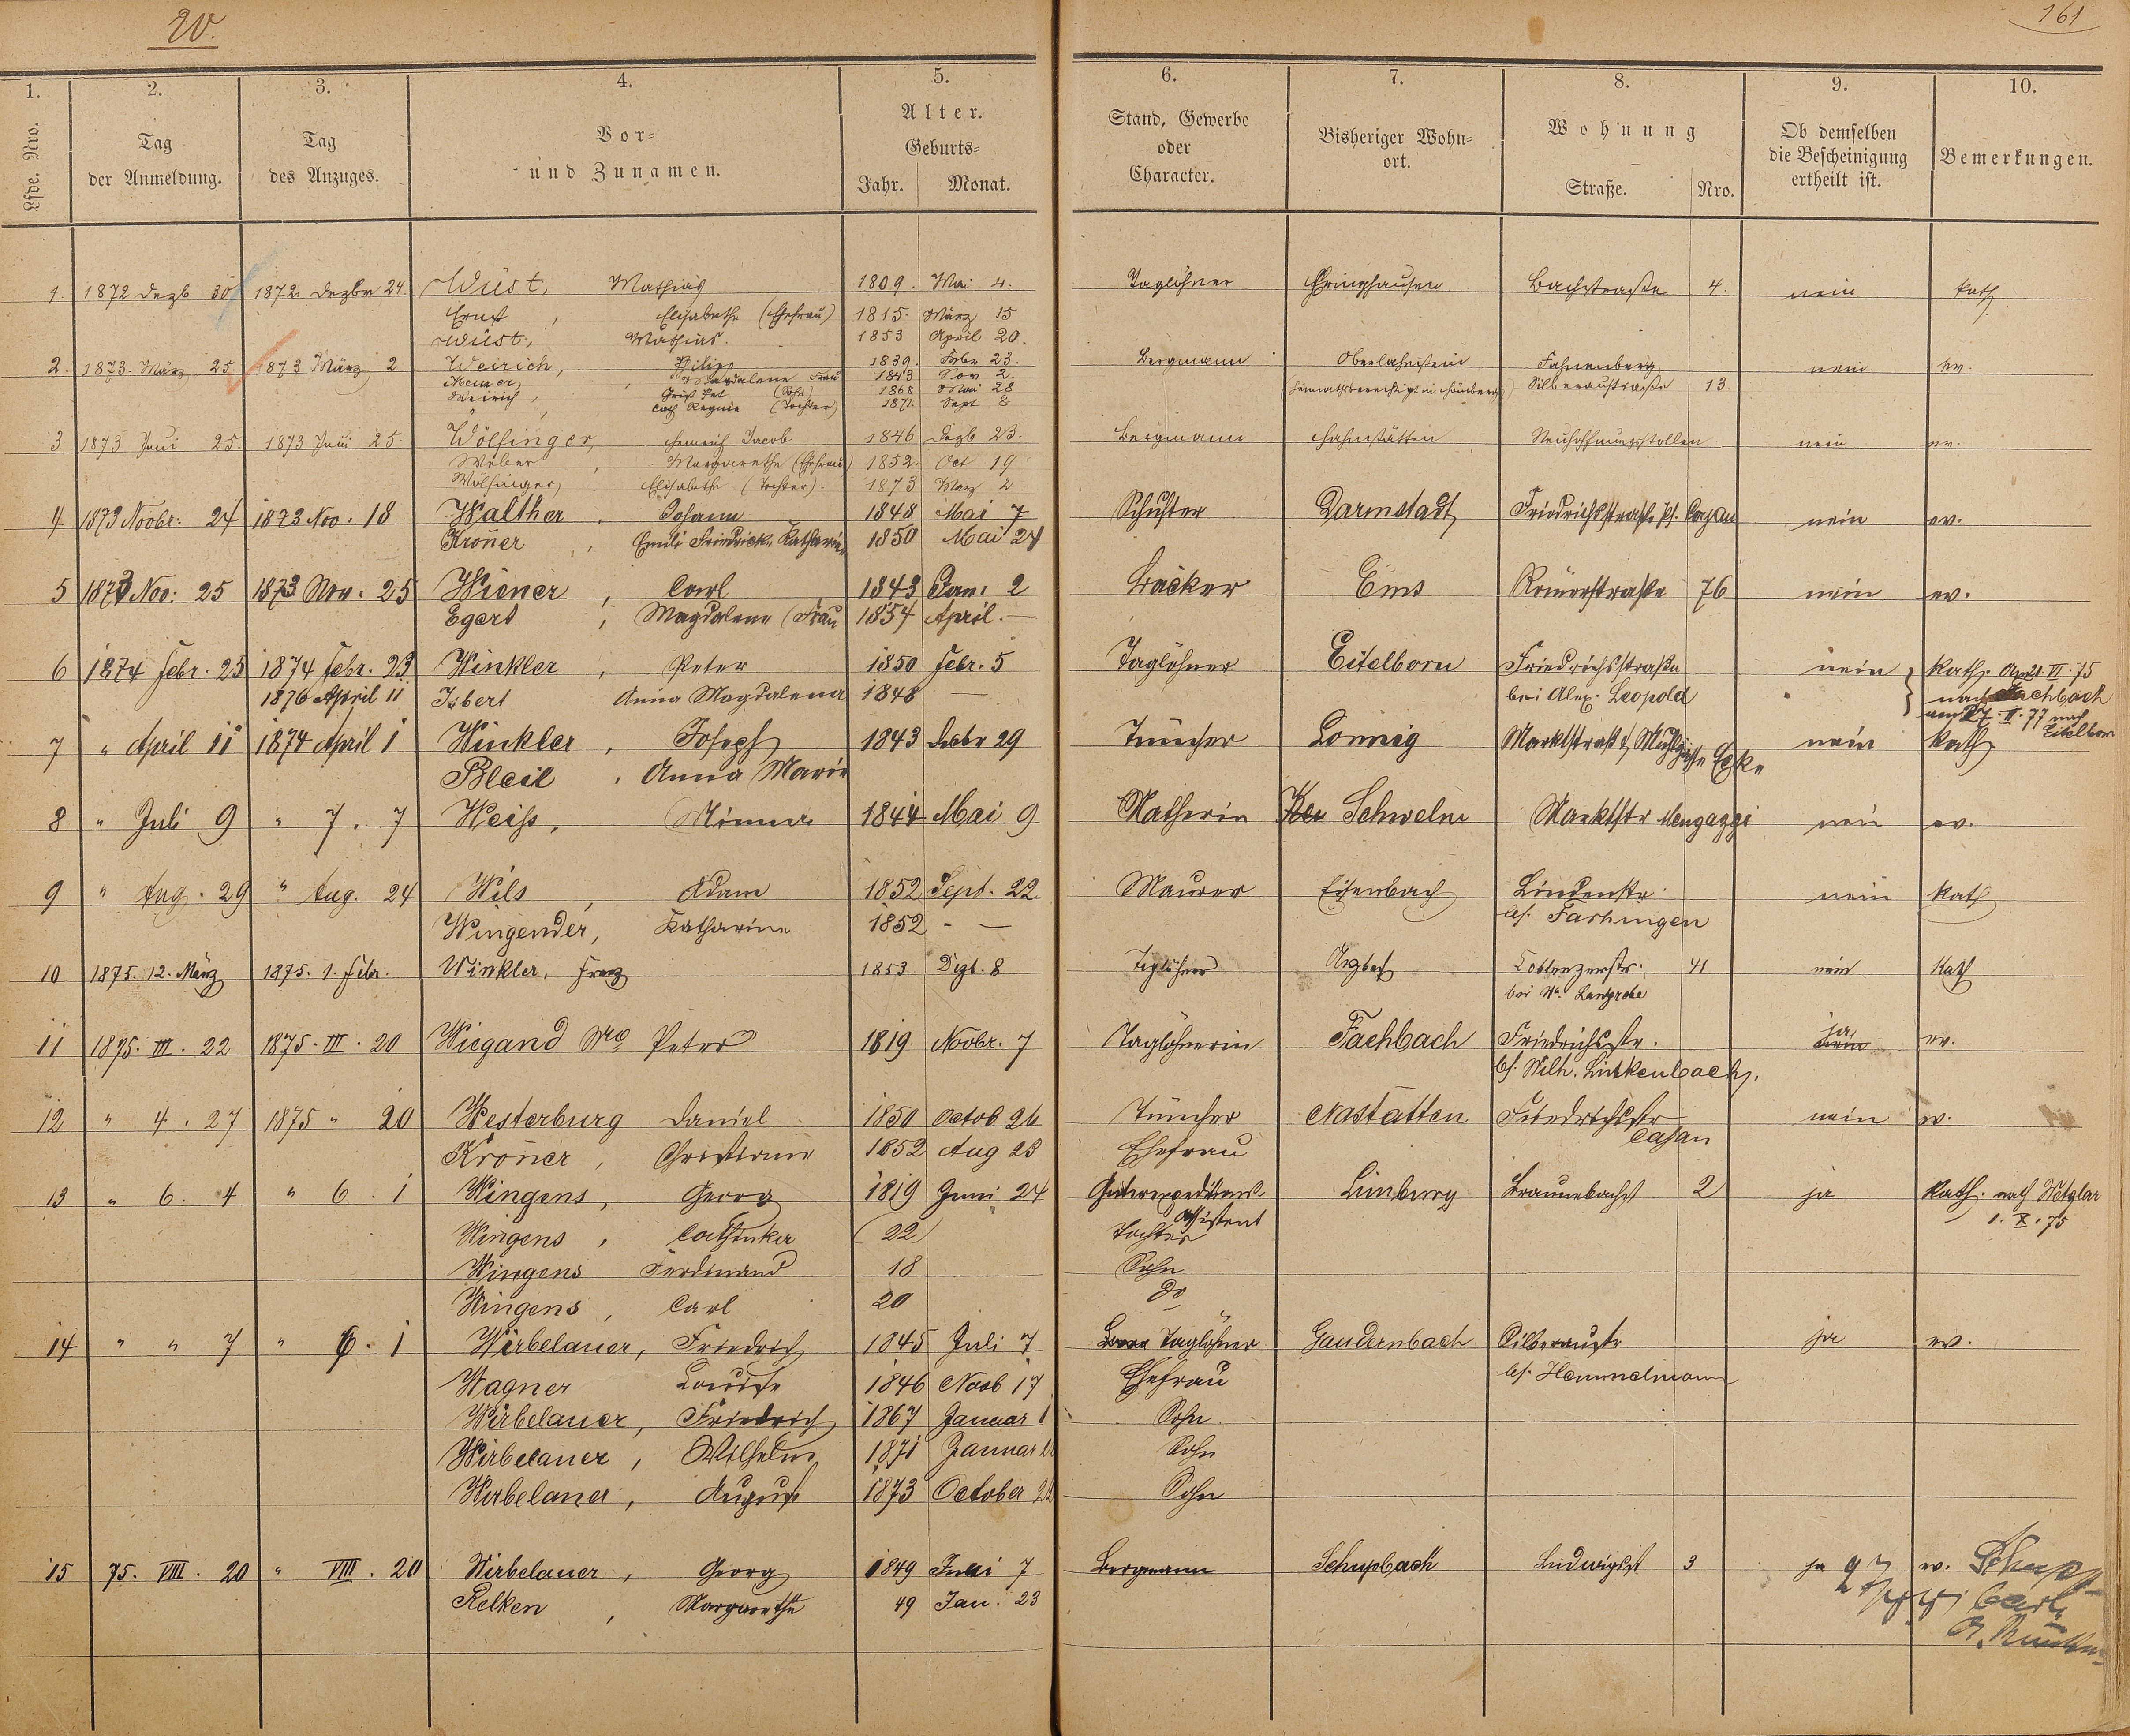 W.
161
1.
2.
3.
4.
5.
6.
7.
8.
9.
10.
Lfde. Nro.
Tag
der Anmeldung.
Tag
des Anzuges.
Vor-
und Zunamen.
Alter.
Geburts-
Jahr. Monat.
Stand, Gewerbe
oder
Character.
Bisheriger Wohn-
ort.
Wohnung
Straße. Nro.
Ob demselben
die Bescheinigung
ertheilt ist.
Bemerkungen.
1. 1872 Dezb 30 1872 Dezbr 24 Wüst, Mathias 1809. Mai 4. Taglöhner Bachstraße 4. nein kath
Ernst, Elisabethe (Ehefrau) 1815. März 15
Wüst, Mathias 1853 April 20.
2. 1873. März 25. 1873 März 2 Weirich, Philipp 1839. Febr 23. Bergmann Oberlahnstein Fahnenberg nein ev.
Magdalene Frau 1843 Nov 2. Silberaustraße 13.
Weirich, (Sohn) 1868 Mai 28
" (Tochter) 1871. Sept 8
3 1873 Juni 25. 1873 Juni 25. Wölfinger, Heinrich Jacob 1846 Dezb 23. Bergmann Hahnstätten Neuhoffnungsstollen nein ev.
Weber, Margarethe (Ehefrau) 1852. Oct 19
Wölfinger, Elisabethe (Tochter). 1873 März 2
4 1873 Novbr: 24 1873 Nov. 18 Walther, Johann 1848 Mai 7 Schuster Darmstadt Friedrichsstraße Cajan nein ev.
Kröner, Emili Friedricke Katharine 1850 Mai 24
5 1873 Nov: 25 1873 Nov. 25 Wiener, Carl 1843 Jan: 2 Bäcker Ems Römerstraße 76 nein ev.
Egert, Magdalena (Frau 1854 April. —
6 1874 Febr. 25 1874 Febr. 23 Winkler, Peter 1850 Febr. 5 Taglöhner Eitelborn Friedrichsstraße nein kath. VI. 75
1876 April 11 Isbert Anna Magdalena 1848 — bei Alex. Leopold nach Fachbach
II. 77 nach
Eitelborn
7 " April 11 1874 April 1 Winkler, Joseph 1843 Decbr 29 Tüncher Lonnig Marktstraße Ecke nein kath
Bleil, Anna Marie
8 " Juli 9 " 7. 7 Weiss, Minna 1844 Mai 9 Nätherin Schwelm Marktstr Mengazzi nein ev.
9 " Aug. 29 " Aug. 24 Wils, Adam 1852 Sept. 22 Maurer Eisenbach Lindenstr. nein kath
Wingender, Katharina 1852 - — bei Fachingen
10 1875. 12. März 1875. 1. Febr. Winkler, Franz 1853 Dezb. 8 Taglöhner Arzbach Coblenzerstr. 41 nein Kath
bei
11 1875. III. 22 1875. III. 20 Wiegand Wwe Peter 1819 Novbr. 7 Taglöhnerin Fachbach Friedrichsstr. ja ev.
bei Wilh. Linkenbach.
12 " 4. 27 1875 " 20 Westerburg Daniel 1850 Octob 26 Tüncher Nastätten Friedrichsstr nein ev.
Kröner, Christiane 1852 Aug 28 Ehefrau Cajan
13 " 6. 4 " 6. 1 Wingens, Georg 1819 Juni 24 Güterexpeditions- Limburg Braunebachst 2 ja kath. nach Wetzlar
assistent 1. X. 75
Wingens, Cathinka (22) Tochter
Wingens Ferdinand 18 Sohn
Wingens, Carl 20 do
14 " " 7 " 6. 1 Wirbelauer, Friedrich 1845 Juli 7 Taglöhner Gaudernbach Silberaustr ja ev.
Wagner Louise 1846 Novb 17 Ehefrau bei Hemmelmann
Wirbelauer, Friedrich 1867 Januar 1 Sohn
Wirbelauer, Wilhelm 1871 Januar Sohn
Wirbelauer, August 1873 October 22 Sohn
15 75. VIII. 20 " VIII. 20 Wirbelauer, Georg 1849 Juni 7 Bergmann Schupbach Ludwigst 3 ja ev.
Relken, Margarethe 49 Jan. 23